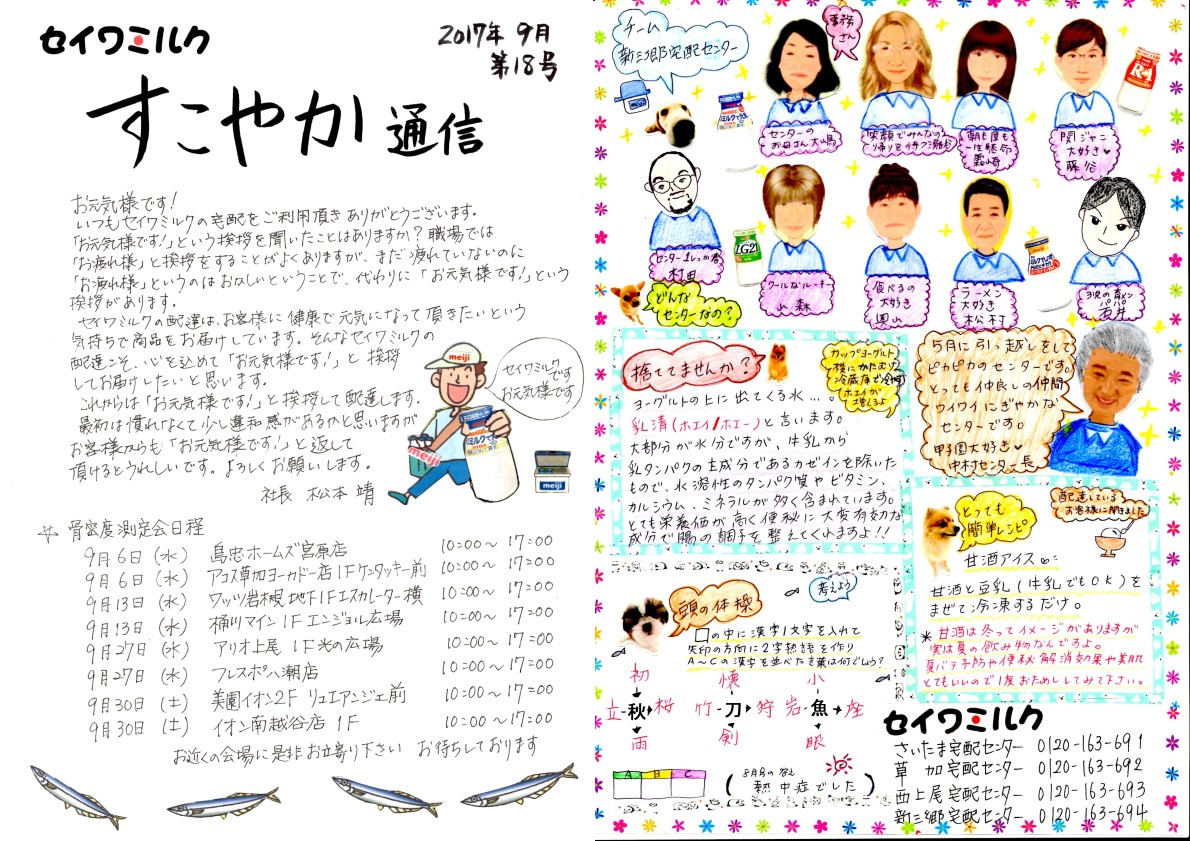 セイワミルク
2017年 9月
第18号
すこやか通信
お元気様です!
いつもセイワミルクの宅配をご利用頂き ありがとうございます。
「お元気様です!」という挨拶を聞いたことはありますか? 職場では
「お疲れ様」と挨拶をすることがよくありますが、まだ疲れていないのに
「お疲れ様」というのはおかしいということで、代わりに「お元気様です!」という
挨拶があります。
セイワミルクの配達は、お客様に健康で元気になって頂きたいという
気持ちで商品をお届けしています。そんなセイワミルクの
配達こそ、心を込めて「お元気様です!」と 挨拶
してお届けしたいと思います。
これからは「お元気様です!」と挨拶して配達します。
最初は慣れなくて少し違和感があるかと思いますが
お客様からも「お元気様です!」と返して
頂けるとうれしいです。よろしくお願いします。
社長 松本 靖
meiji
セイワミルク
です
お元気様です
meiji
meiji
骨密度測定会日程
9月6日(水) 島忠ホームズ宮原店 10:00～17:00
9月6日(水) アコス草加ヨーカドー店1Fケンタッキー前 10:00～17:00
9月13日(水) ワッツ岩槻 地下1Fエスカレーター横 10:00～17:00
9月13日(水) 桶川マイン 1F エンジョル広場 10:00～17:00
9月27日(水) アリオ上尾 1F光の広場 10:00～17:00
9月27日(水) フレスポ八潮店 10:00～17:00
9月30日(土) 美園イオン2F リュエアンジェ前 10:00～17:00
9月30日(土) イオン南越谷店 1F 10:00～17:00
お近くの会場に是非お立寄り下さい お待ちしております
チーム
新三郷宅配センター
事務
さん
R-1
センターの
お母さん 大嶋
笑顔でみんなの
朝も昼も
一生懸命
霧崎
関ジャニ
大好き♥
藤谷
LG21
センター1しっかり者
村田
クールなルーキー
小森
食べるの
大好き
園山
ラーメン
大好き
松村
3児の育メン
パパ
若井
どんな
センターなの?
5月に引っ越しをして
ピカピカのセンターです。
とっても仲良しの仲間
ワイワイにぎやかな
センターです。
甲子園大好き♥
中村センター長
捨ててませんか?
カップヨーグルト
横にかたむけ
冷蔵庫で
ホエイが
増えるよ
ヨーグルトの上に出てくる水…。
乳清(ホエイ/ホエー)と言います。
大部分が水分ですが、牛乳から
乳タンパクの主成分であるカゼインを除いた
もので、水溶性のタンパク質やビタミン、
カルシウム、ミネラルが多く含まれています。
とても栄養価が高く便秘に大変有効な
成分で腸の調子を整えてくれますよ!!
とっても
簡単レシピ
配達している
お客様に聞きました
甘酒アイス
甘酒と豆乳(牛乳でもOK)を
まぜて冷凍するだけ。
*甘酒は冬ってイメージがありますが
実は夏の飲み物なんですよ。
夏バテ予防や便秘解消効果や美肌
とてもいいので1度おためししてみて下さい。
頭の体操
考えよう
□の中に漢字1文字を入れて
矢印の方向に2字熟語を作り
A～Cの漢字を並べた言葉は何でしょう?
初 懐 小
立 秋 桜 竹 刀 狩 岩 魚 座
雨 剣 眼
A B C
(8月号の答え
熱中症でした)
セイワミルク
さいたま宅配センター 0120-163-691
草加宅配センター 0120-163-692
西上尾宅配センター 0120-163-693
新三郷宅配センター 0120-163-694